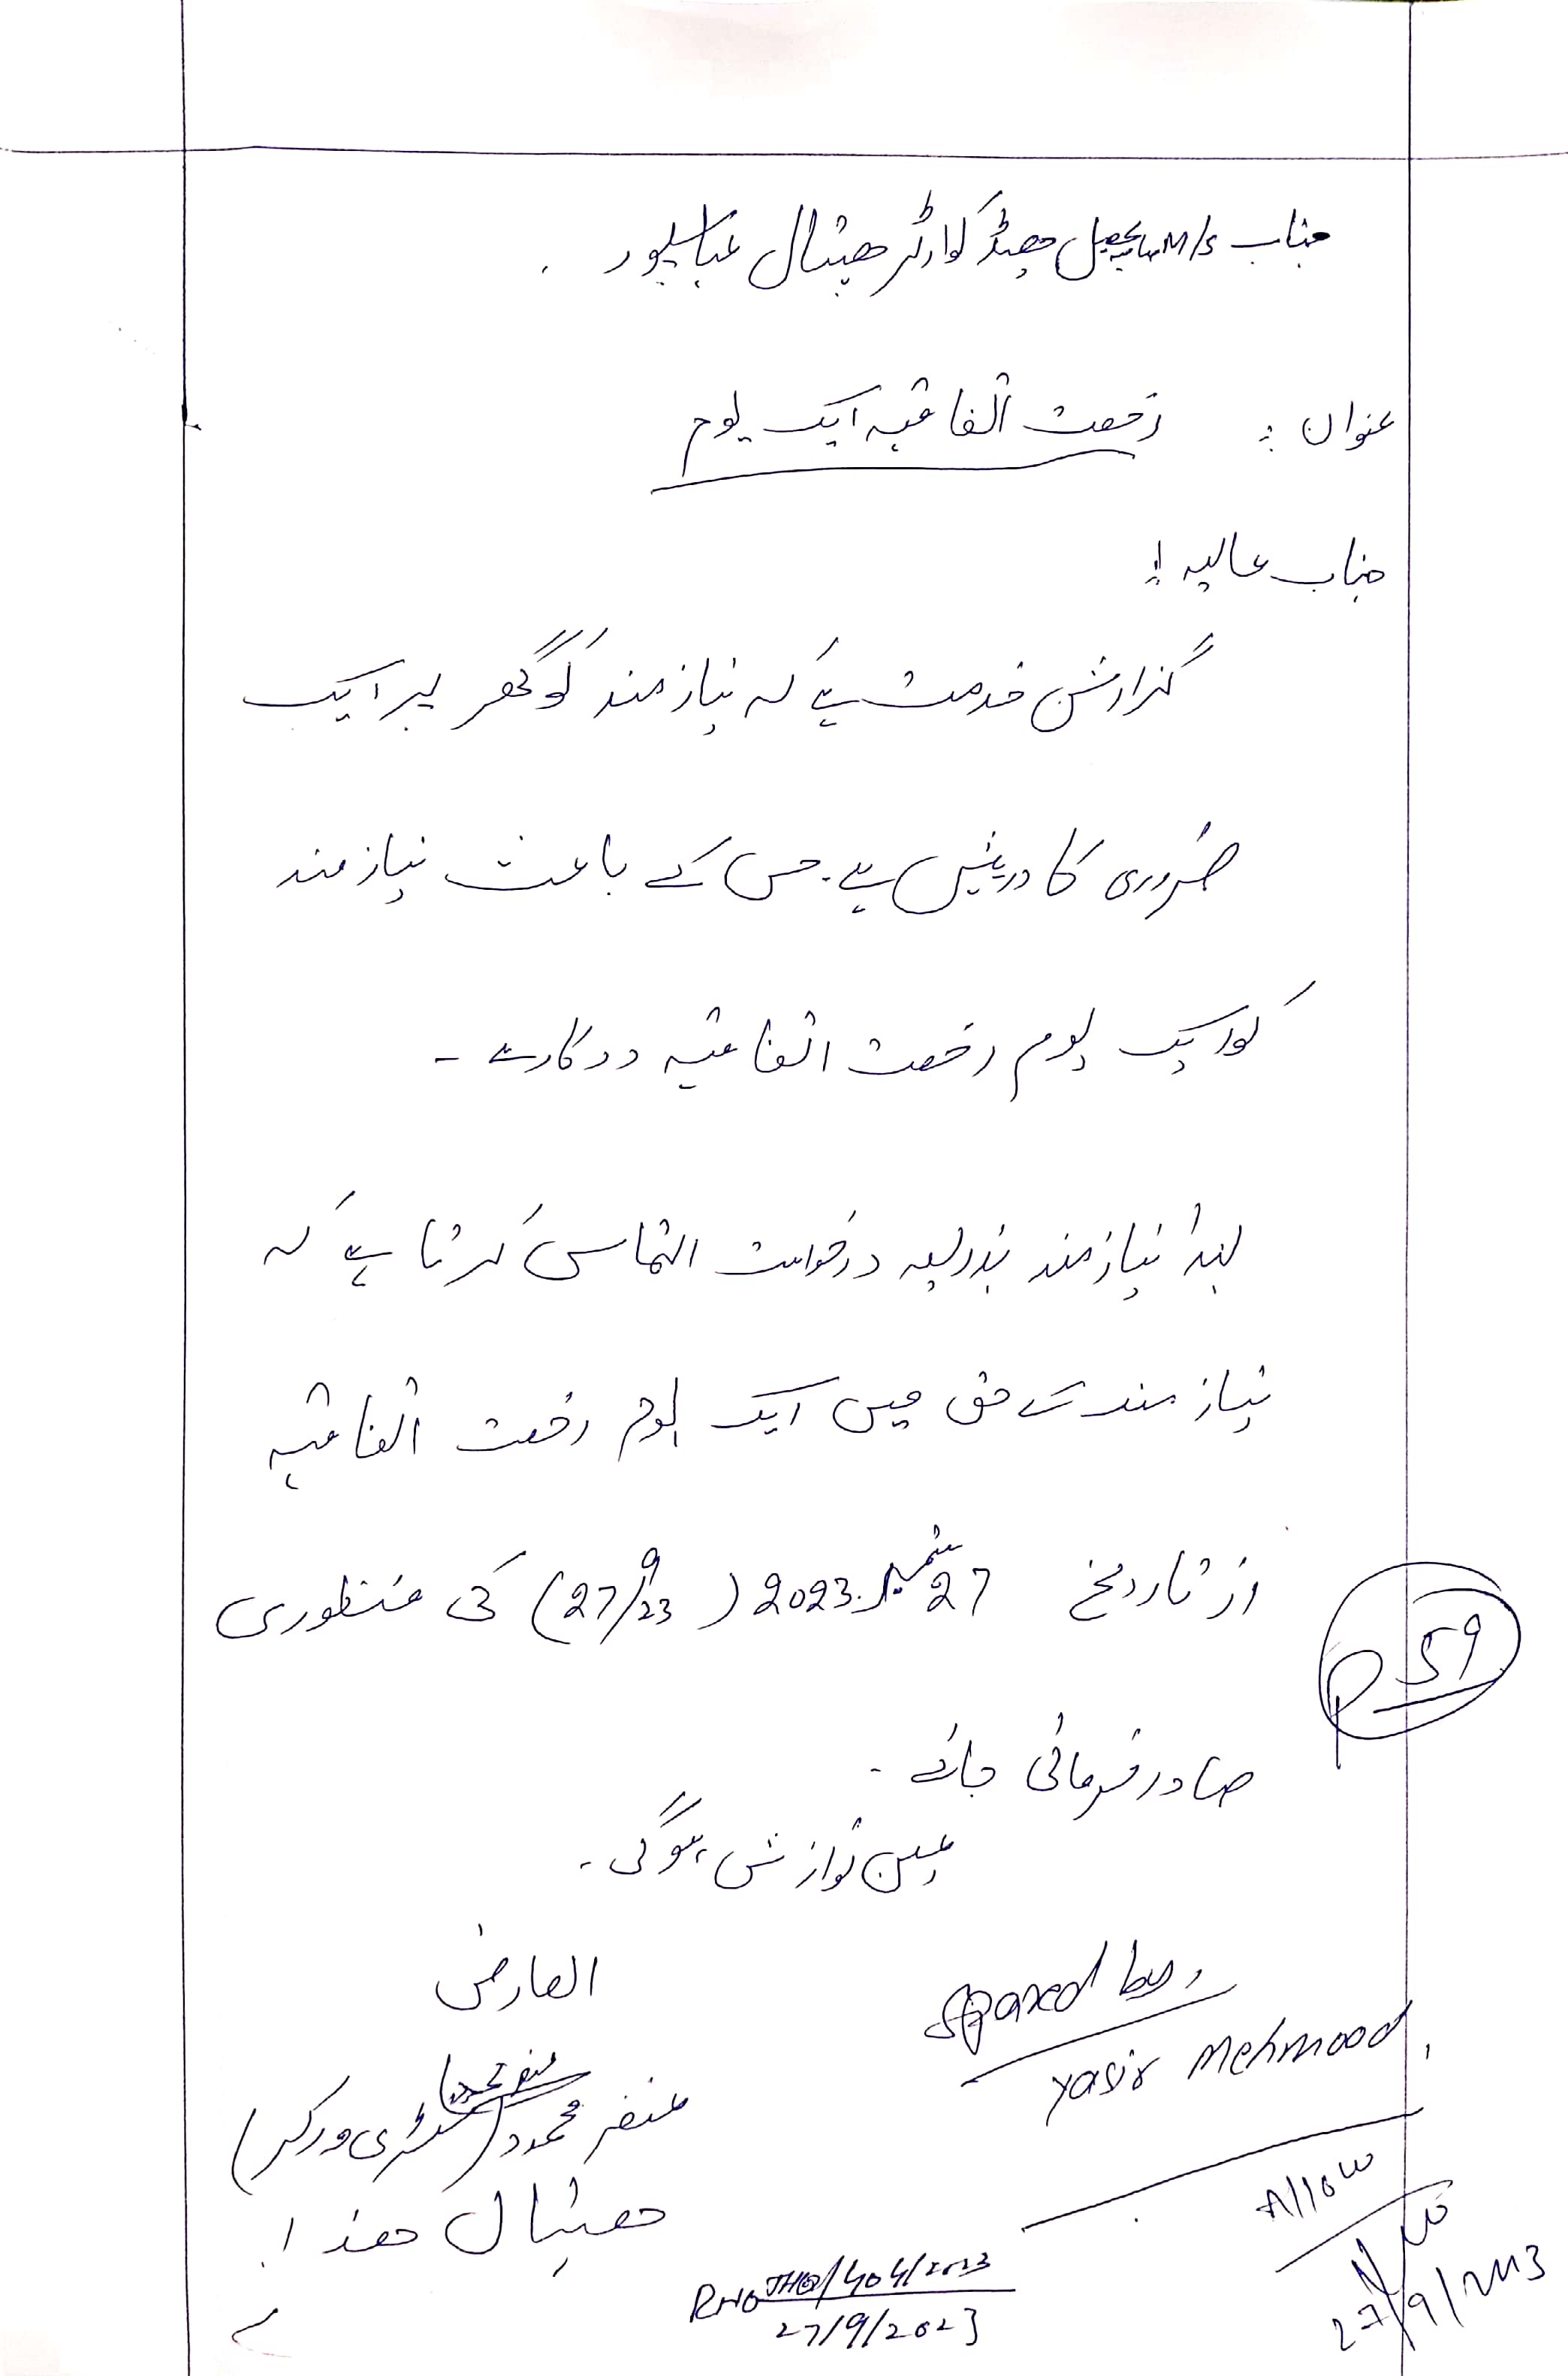 جناب M/S صاحب تحصیل ھیڈ کوارٹر ھسپتال عباسپور .
عنوان : رخصت اتفاقیہ ایک یوم
جناب عالیہ !
گزارش خدمت ہے کہ نیاز مند کو گھر پر ایک
ضروری کا درپیش ہے ۔ جس کے باعث نیاز مند
کو ایک یوم رخصت اتفاقیہ درکار ہے ۔
لہذا نیاز مند بذریعہ درخواست التماس کرتا ہے کہ
نیاز مند کے حق میں ایک یوم رخصت اتفاقیہ
از تاریخ 27 ستمبر 2023 (27/9/23) کی منظوری
P 59
صادر فرمائی جائے ۔
عین نوازش ہو گی ۔
العارض
Spared by
Yasir Mehmood
محمود (سنٹری ورکر)
ھسپتال ھذا !
Allow
27/9/2023
THQ/404/2023
27/9/2023